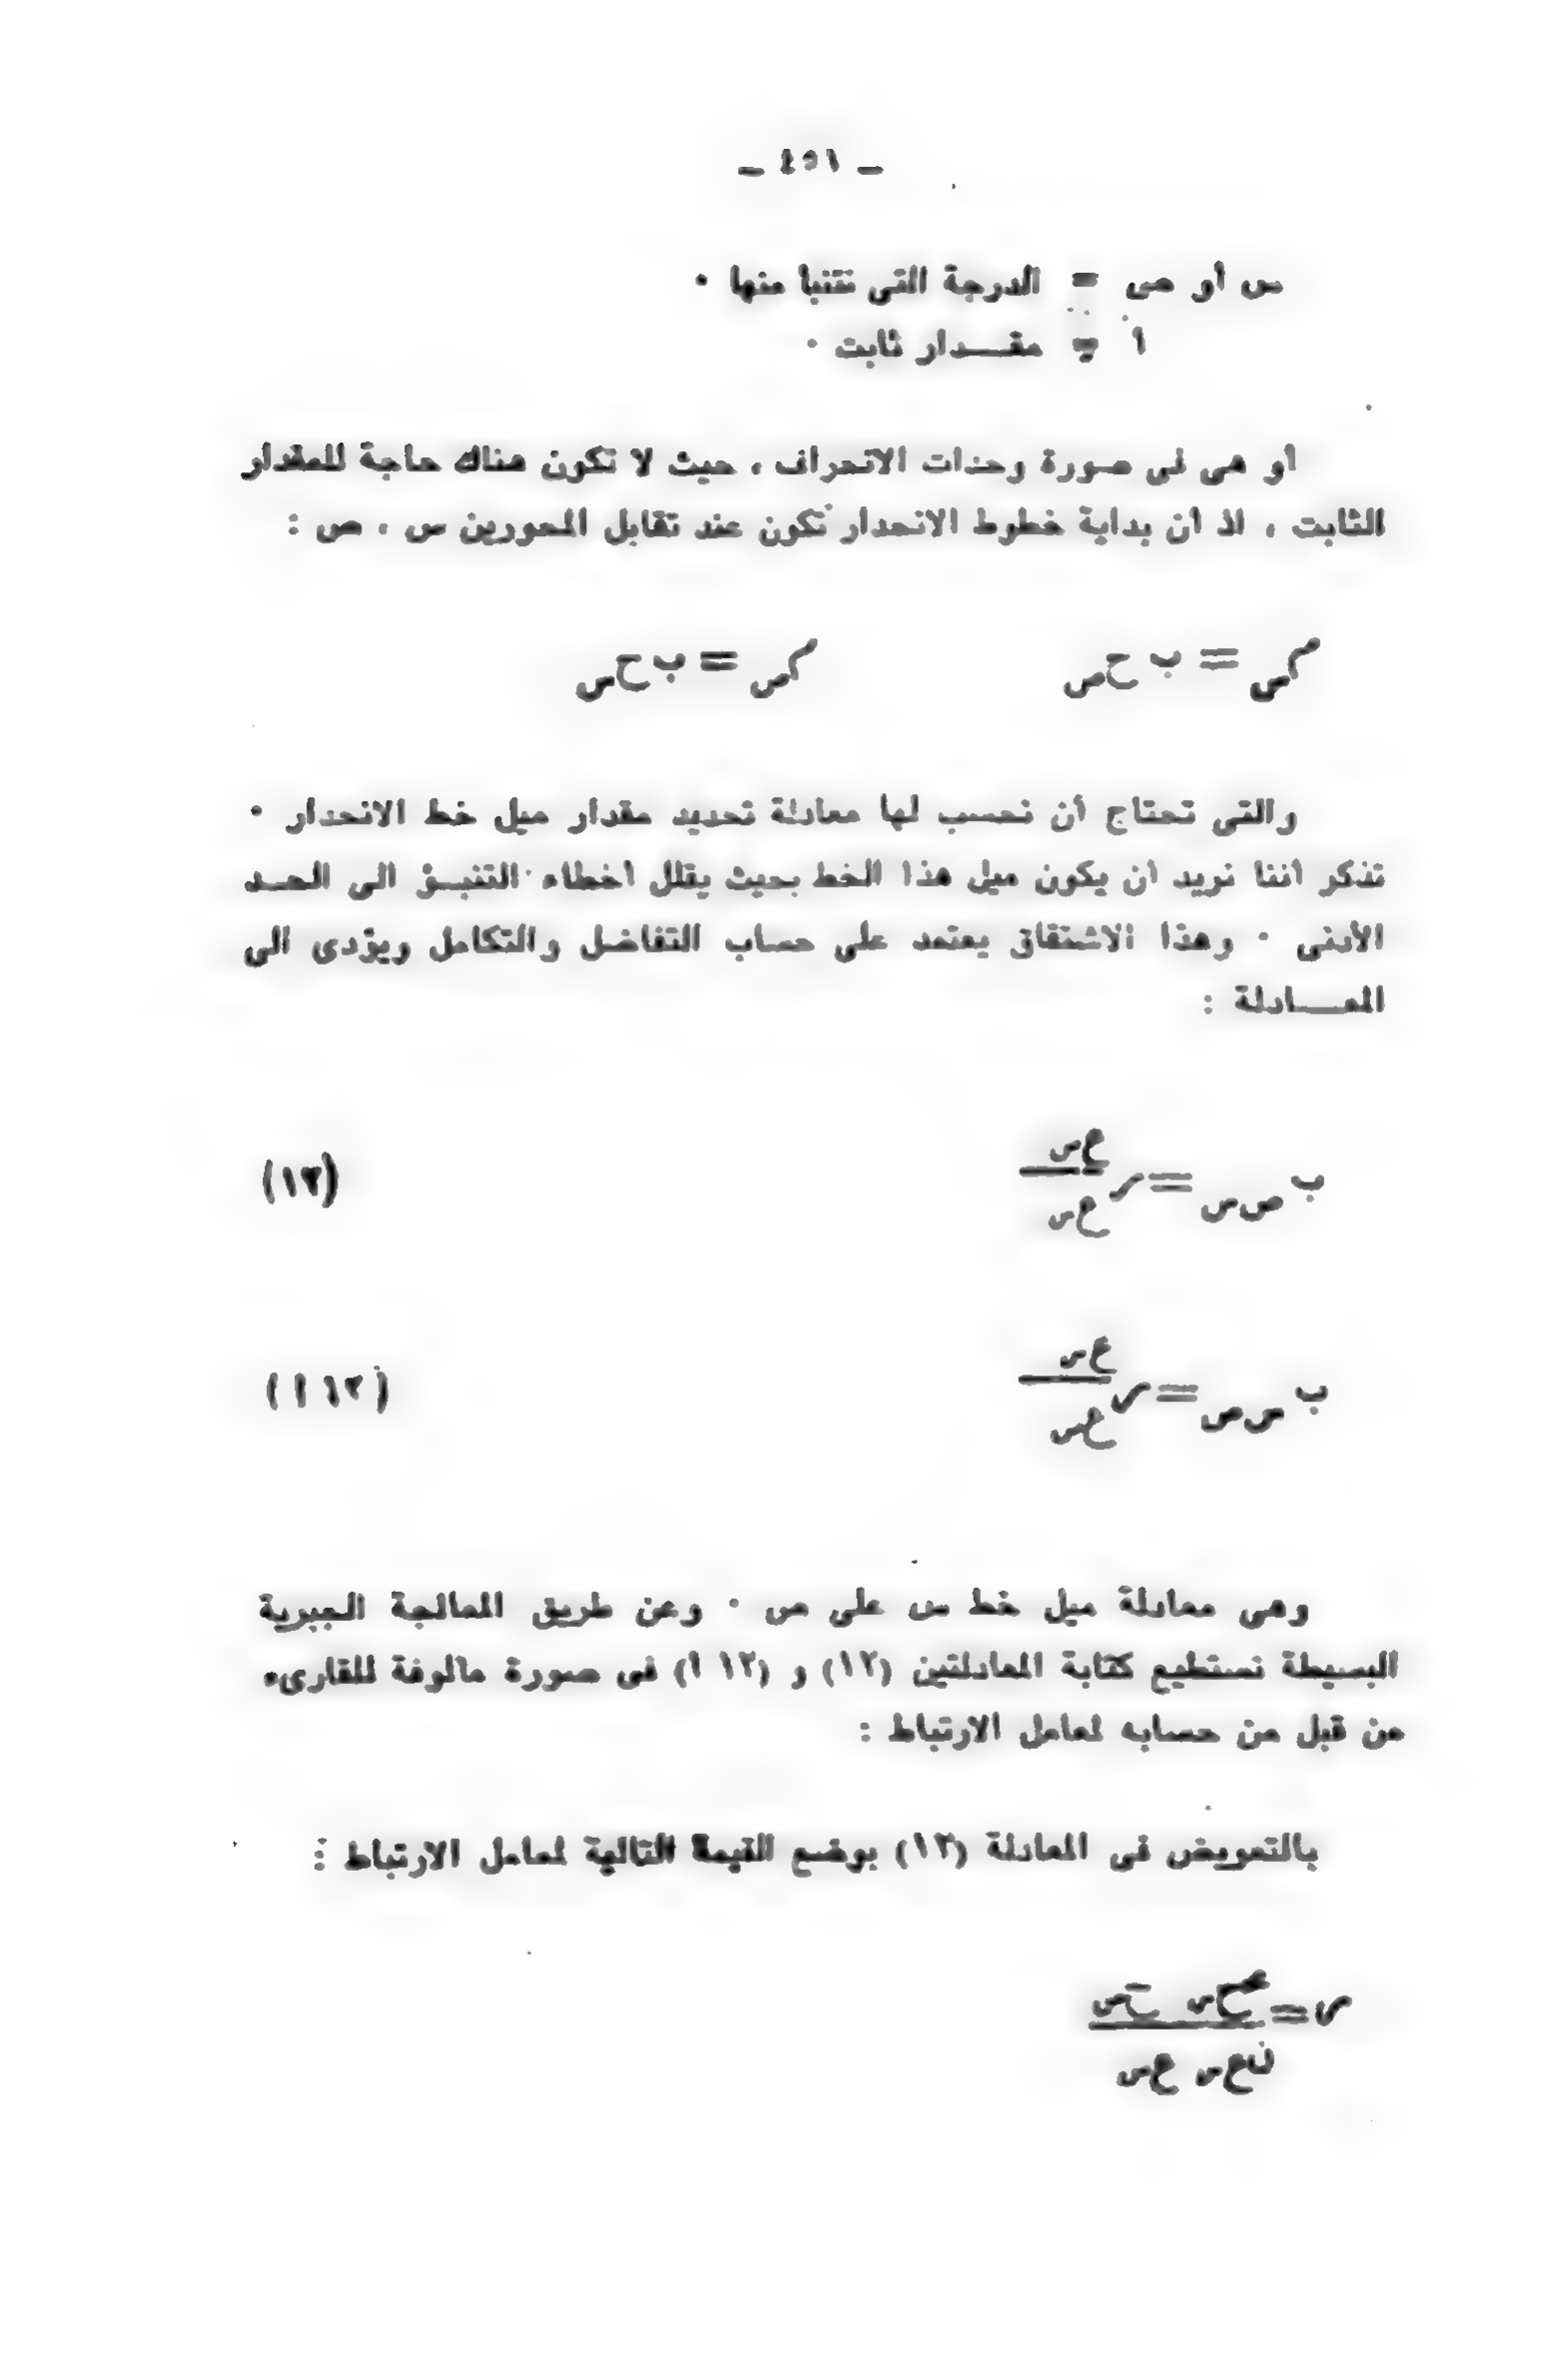 ـ ٤٥١ ـ
س أو ص = الدرجة التى نتنبأ منها ٠
أ = مقـــدار ثابت ٠
أو هى فى صورة وحدات الانحراف ، حيث لا تكون هناك حاجة للمقدار
الثابت ، اذ أن بداية خطوط الانحدار تكون عند تقابل المحورين س ، ص :
= ب ح
= ب ح
والتى تحتاج أن نحسب لها معادلة تحديد مقدار ميل خط الانحدار ٠
تذكر اننا نريد ان يكون ميل هذا الخط بحيث يقلل اخطاء التنبـؤ الى الحـد
الأدنى ٠ وهذا الاشتقاق يعتمد على حساب التفاضل والتكامل ويؤدى الى
المعــادلة :
ب ص س = ر (١٢)
ب س ص = ر (١٢ أ)
وهى معادلة ميل خط س على ص ٠ وعن طريق المعالجة الجبرية
البسيطة نستطيع كتابة المعادلتين (١٢) و (١٢ أ) فى صورة مالوفة للقارىء
من قبل من حسابه لمعامل الارتباط :
بالتعويض فى المعادلة (١٢) بوضع القيمة التالية لمعامل الارتباط :
ر = مج ح س ح ص
ن ع س ع ص